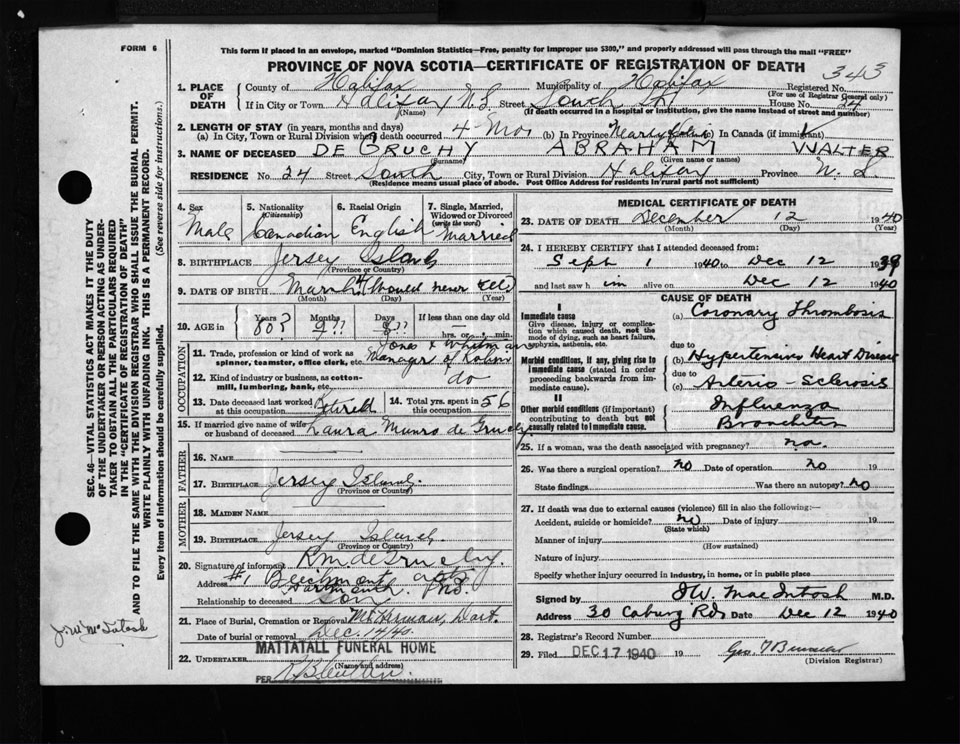 FORM 6
This form if placed in an envelope, marked "Dominion Statistics—Free, penalty for improper use $300," and properly addressed will pass through the mail "FREE"
PROVINCE OF NOVA SCOTIA—CERTIFICATE OF REGISTRATION OF DEATH
343
1. PLACE OF DEATH
County of Halifax Municipality of Halifax Registered No.
(For use of Registrar General only)
If in City or Town Halifax N.S. Street South St. House No. 24
(Name) (If death occurred in a hospital or institution, give the name instead of street and number)
2. LENGTH OF STAY (in years, months and days)
(a) In City, Town or Rural Division where death occurred 4 mos (b) In Province Nearly (c) In Canada (if immigrant)
3. NAME OF DECEASED DE GRUCHY ABRAHAM WALTER
(Surname) (Given name or names)
RESIDENCE No. 24 Street South City, Town or Rural Division Halifax Province N. S.
(Residence means usual place of abode. Post Office Address for residents in rural parts not sufficient)
4. Sex Male
5. Nationality (Citizenship) Canadian
6. Racial Origin English
7. Single, Married, Widowed or Divorced (write the word) Married
8. BIRTHPLACE Jersey Island
(Province or Country)
9. DATE OF BIRTH March 4 (Would never tell)
(Month) (Day) (Year)
10. AGE in Years 80? Months 9?? Days 8?? If less than one day old hrs. or min.
OCCUPATION
11. Trade, profession or kind of work as spinner, teamster, office clerk, etc. Manager of Robin Jones & Whitman
12. Kind of industry or business, as cotton-mill, lumbering, bank, etc. do
13. Date deceased last worked at this occupation Retired
14. Total yrs. spent in this occupation 56
15. If married give name of wife or husband of deceased Laura Munro de Gruchy
FATHER
16. NAME
17. BIRTHPLACE Jersey Island.
(Province or Country)
MOTHER
18. MAIDEN NAME
19. BIRTHPLACE Jersey Island.
(Province or Country)
20. Signature of informant R M de Gruchy.
Address #1 Beechmont apts Dartmouth
Relationship to deceased Son
21. Place of Burial, Cremation or Removal Mt. Herman, Dart.
Date of burial or removal Dec. 14/40.
22. UNDERTAKER MATTATALL FUNERAL HOME
(Name and address)
PER
MEDICAL CERTIFICATE OF DEATH
23. DATE OF DEATH December 12 1940
(Month) (Day) (Year)
24. I HEREBY CERTIFY that I attended deceased from:
Sept 1 1940 to Dec 12 1939
and last saw him alive on Dec 12 1940
CAUSE OF DEATH
I
Immediate cause
Give disease, injury or complication which caused death, not the mode of dying, such as heart failure, asphyxia, asthenia, etc.
(a) Coronary Thrombosis
due to
Morbid conditions, if any, giving rise to immediate cause (stated in order proceeding backwards from immediate cause).
(b) Hypertensive Heart Disease
due to
(c) Arterio-Sclerosis
II
Other morbid conditions (if important) contributing to death but not causally related to immediate cause.
Influenza
Bronchitis
25. If a woman, was the death associated with pregnancy? no.
26. Was there a surgical operation? no Date of operation no 19
State findings Was there an autopsy? no
27. If death was due to external causes (violence) fill in also the following:—
Accident, suicide or homicide? no Date of injury 19
(State which)
Manner of injury
(How sustained)
Nature of injury
Specify whether injury occurred in industry, in home, or in public place
Signed by J W. MacIntosh M.D.
Address 30 Coburg Rd Date Dec 12 1940
28. Registrar's Record Number
29. Filed DEC 17 1940 19
(Division Registrar)
SEC. 46—VITAL STATISTICS ACT MAKES IT THE DUTY OF THE UNDERTAKER OR PERSON ACTING AS UNDERTAKER TO OBTAIN ALL THE PARTICULARS REQUIRED IN THE "CERTIFICATE OF REGISTRATION OF DEATH" AND TO FILE THE SAME WITH THE DIVISION REGISTRAR WHO SHALL ISSUE THE BURIAL PERMIT.
WRITE PLAINLY WITH UNFADING INK. THIS IS A PERMANENT RECORD.
Every item of information should be carefully supplied. (See reverse side for instructions.)